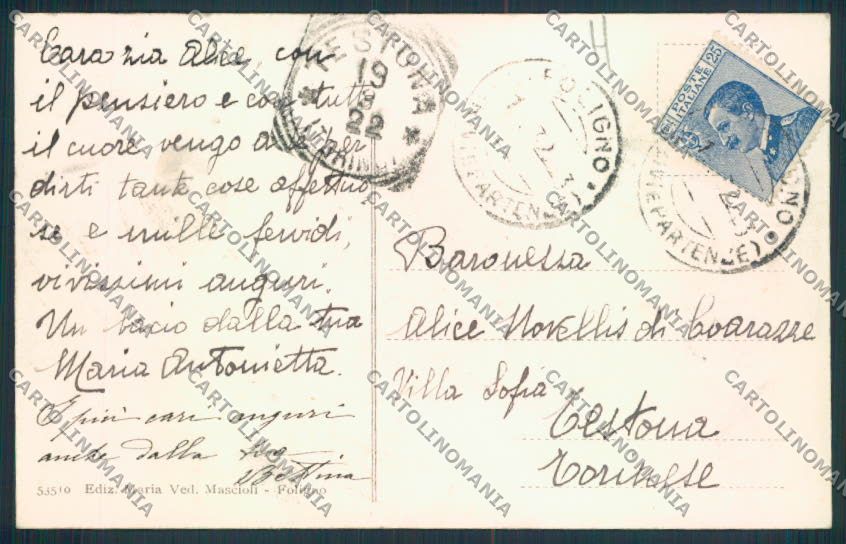 Cara zia Alice, con
il pensiero e con tutto
il cuore vengo a te per
dirti tante cose affettuo
se e mille fervidi,
vivissimi auguri.
Un bacio dalla tua
Maria Antonietta.
E più cari auguri
anche dalla tua
Bettina
53510 Ediz. Maria Ved. Mascioli - Foligno
TESTONA
19
8
22
(TORINO)
FOLIGNO
(VIE PARTENZE)
POSTE ITALIANE
25
FOLIGNO
(VIE PARTENZE)
Baronessa
Alice Novellis di Coarazze
Villa Sofia
Testona
Torinese
CARTOLINOMANIA